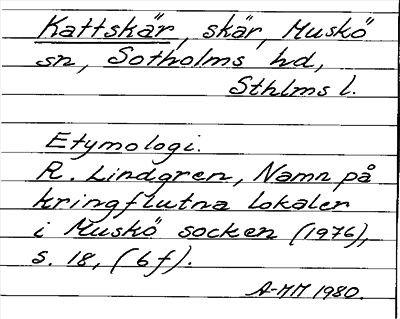 Kattskär, skär, Muskö
sn, Sotholms hd,
Sthlms l.
Etymologi.
R. Lindgren, Namn på
kringflutna lokaler
i Muskö socken (1976),
s. 18, (6f).
A-MM 1980.